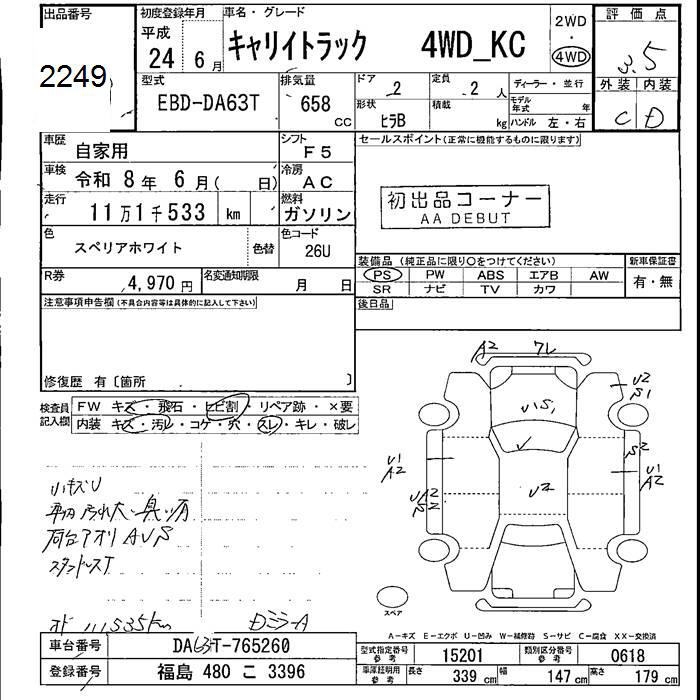 出品番号
2249
初度登録年月
平成
24 6月
車名・グレード
キャリイトラック 4WD_KC
2WD
・
4WD
評価点
3.5
外装 内装
C D
型式
EBD-DA63T
排気量
658 CC
ドア 2
定員 2人
ディーラー・並行
形状 ヒラB
積載 kg
モデル年式 年
ハンドル 左・右
車歴 自家用
シフト F5
セールスポイント(正常に機能するものに限ります)
車検 令和 8年 6月( 日)
冷房 AC
初出品コーナー
AA DEBUT
走行 11万1千533 km
燃料 ガソリン
色 スペリアホワイト
色替
色コード 26U
装備品 (純正品に限り○をつけてください)
新車保証書
PS PW ABS エアB AW
有・無
SR ナビ TV カワ
R券 4,970円
名変通知期限 月 日
後日品
注意事項申告欄(不具合内容等は具体的に記入して下さい)
修復歴 有〔箇所 〕
検査員記入欄
FW キズ・飛石・ヒビ割・リペア跡・×要
内装 キズ・汚レ・コゲ・穴・スレ・キレ・破レ
A2 ワレ
U2
S1
U1S1
レ
S2
U1
A2
U1
A2
U2
UA2
S2
小キズU
荷台アオリ AUS
オド 111535km
Dミラー A
スペア
A-キズ E-エクボ U-凹み W-補修跡 S-サビ C-腐食 XX-交換済
車台番号 DA63T-765260
型式指定番号 参考 15201
類別区分番号 参考 0618
登録番号 福島 480 こ 3396
車庫証明用 参考
長さ 339cm 幅 147cm 高さ 179cm